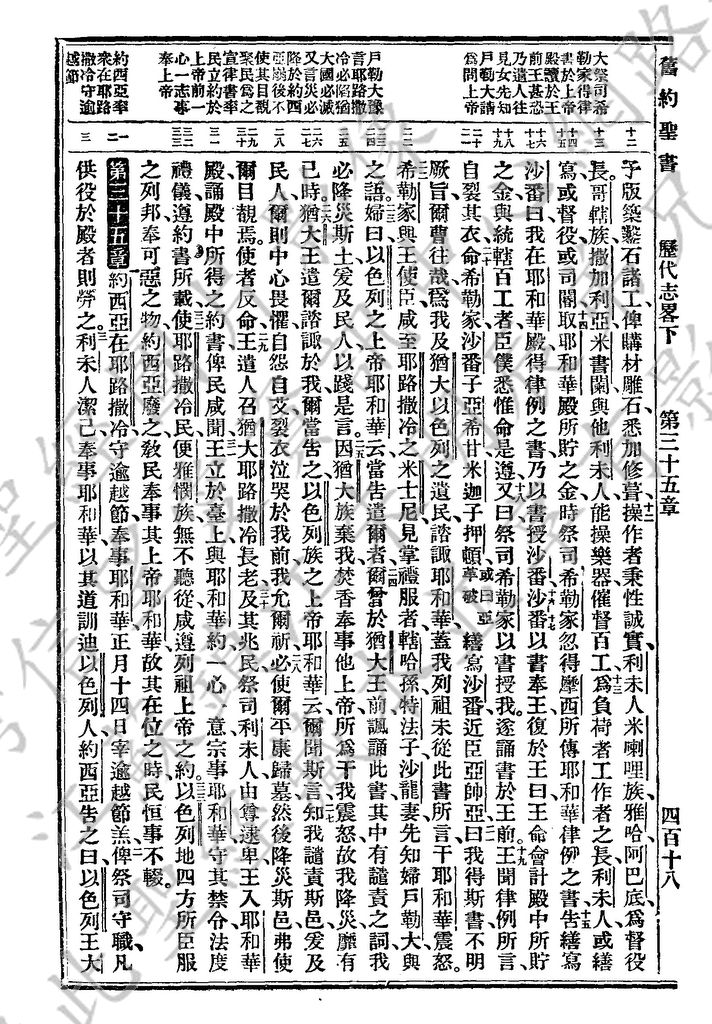 舊約聖書 歷代志畧下 第三十五章 四百十八
大祭司希
勒家得律
書於上帝
殿讀於王
前王甚恐
乃遣人往
見女先知
戶勒大請
爲問上帝
戶勒大豫
言耶路撒
冷必陷猶
大國必滅
又言災必
降於約西
亞崩後不
使其目覩
聚民爲之
宣律書率
民立約於
上帝前一
心一志事
奉上帝
約西亞率
衆在耶路
撒冷守逾
越節
十二
十三
十四
十五
十六
十七
十八
十九
二十
二一
二二
二三
二四
二五
二六
二七
二八
二九
三十
三一
三二
三三
一二
三
予版築鑿石諸工俾購材雕石悉加修葺操作者秉性誠實利未人米喇哩族雅哈阿巴底爲督役
長哥轄族撒加利亞米書蘭與他利未人能操樂器催督百工爲負荷者工作者之長利未人或繕
寫或督役或司閽取耶和華殿所貯之金時祭司希勒家忽得摩西所傳耶和華律例之書告繕寫
沙番曰我在耶和華殿得律例之書乃以書授沙番沙番以書奉王復於王曰王命會計殿中所貯
之金與統轄百工者臣僕悉惟命是遵又曰祭司希勒家以書授我遂誦書於王前王聞律例所言
自裂其衣命希勒家沙番子亞希甘米迦子押頓或曰亞革破繕寫沙番近臣亞帥亞曰我得斯書不明
厥旨爾曹往哉爲我及猶大以色列之遺民諮諏耶和華蓋我列祖未從此書所言干耶和華震怒
希勒家與王使臣咸至耶路撒冷之米士尼見掌禮服者轄哈孫特法子沙龍妻先知婦戶勒大與
之語婦曰以色列之上帝耶和華云當告遣爾者爾曾於猶大王前諷誦此書其中有譴責之詞我
必降災斯土爰及民人以踐是言因猶大族棄我焚香奉事他上帝所爲干我震怒故我降災靡有
已時猶大王遣爾諮諏於我爾當告之以色列族之上帝耶和華云爾聞斯言知我譴責斯邑爰及
民人爾則中心畏懼自怨自艾裂衣泣哭於我前我允爾祈必使爾平康歸墓然後降災斯邑弗使
爾目覩焉使者反命王遣人召猶大耶路撒冷長老及其兆民祭司利未人由尊逮卑王入耶和華
殿誦殿中所得之約書俾民咸聞王立於臺上與耶和華約一心一意宗事耶和華守其禁令法度
禮儀遵約書所載使耶路撒冷民便雅憫族無不聽從咸遵列祖上帝之約以色列地四方所臣服
之列邦奉可惡之物約西亞廢之敎民奉事其上帝耶和華故其在位之時民恒事不輟
第三十五章約西亞在耶路撒冷守逾越節奉事耶和華正月十四日宰逾越節羔俾祭司守職凡
供役於殿者則勞之利未人潔己奉事耶和華以其道訓迪以色列人約西亞告之曰以色列王大